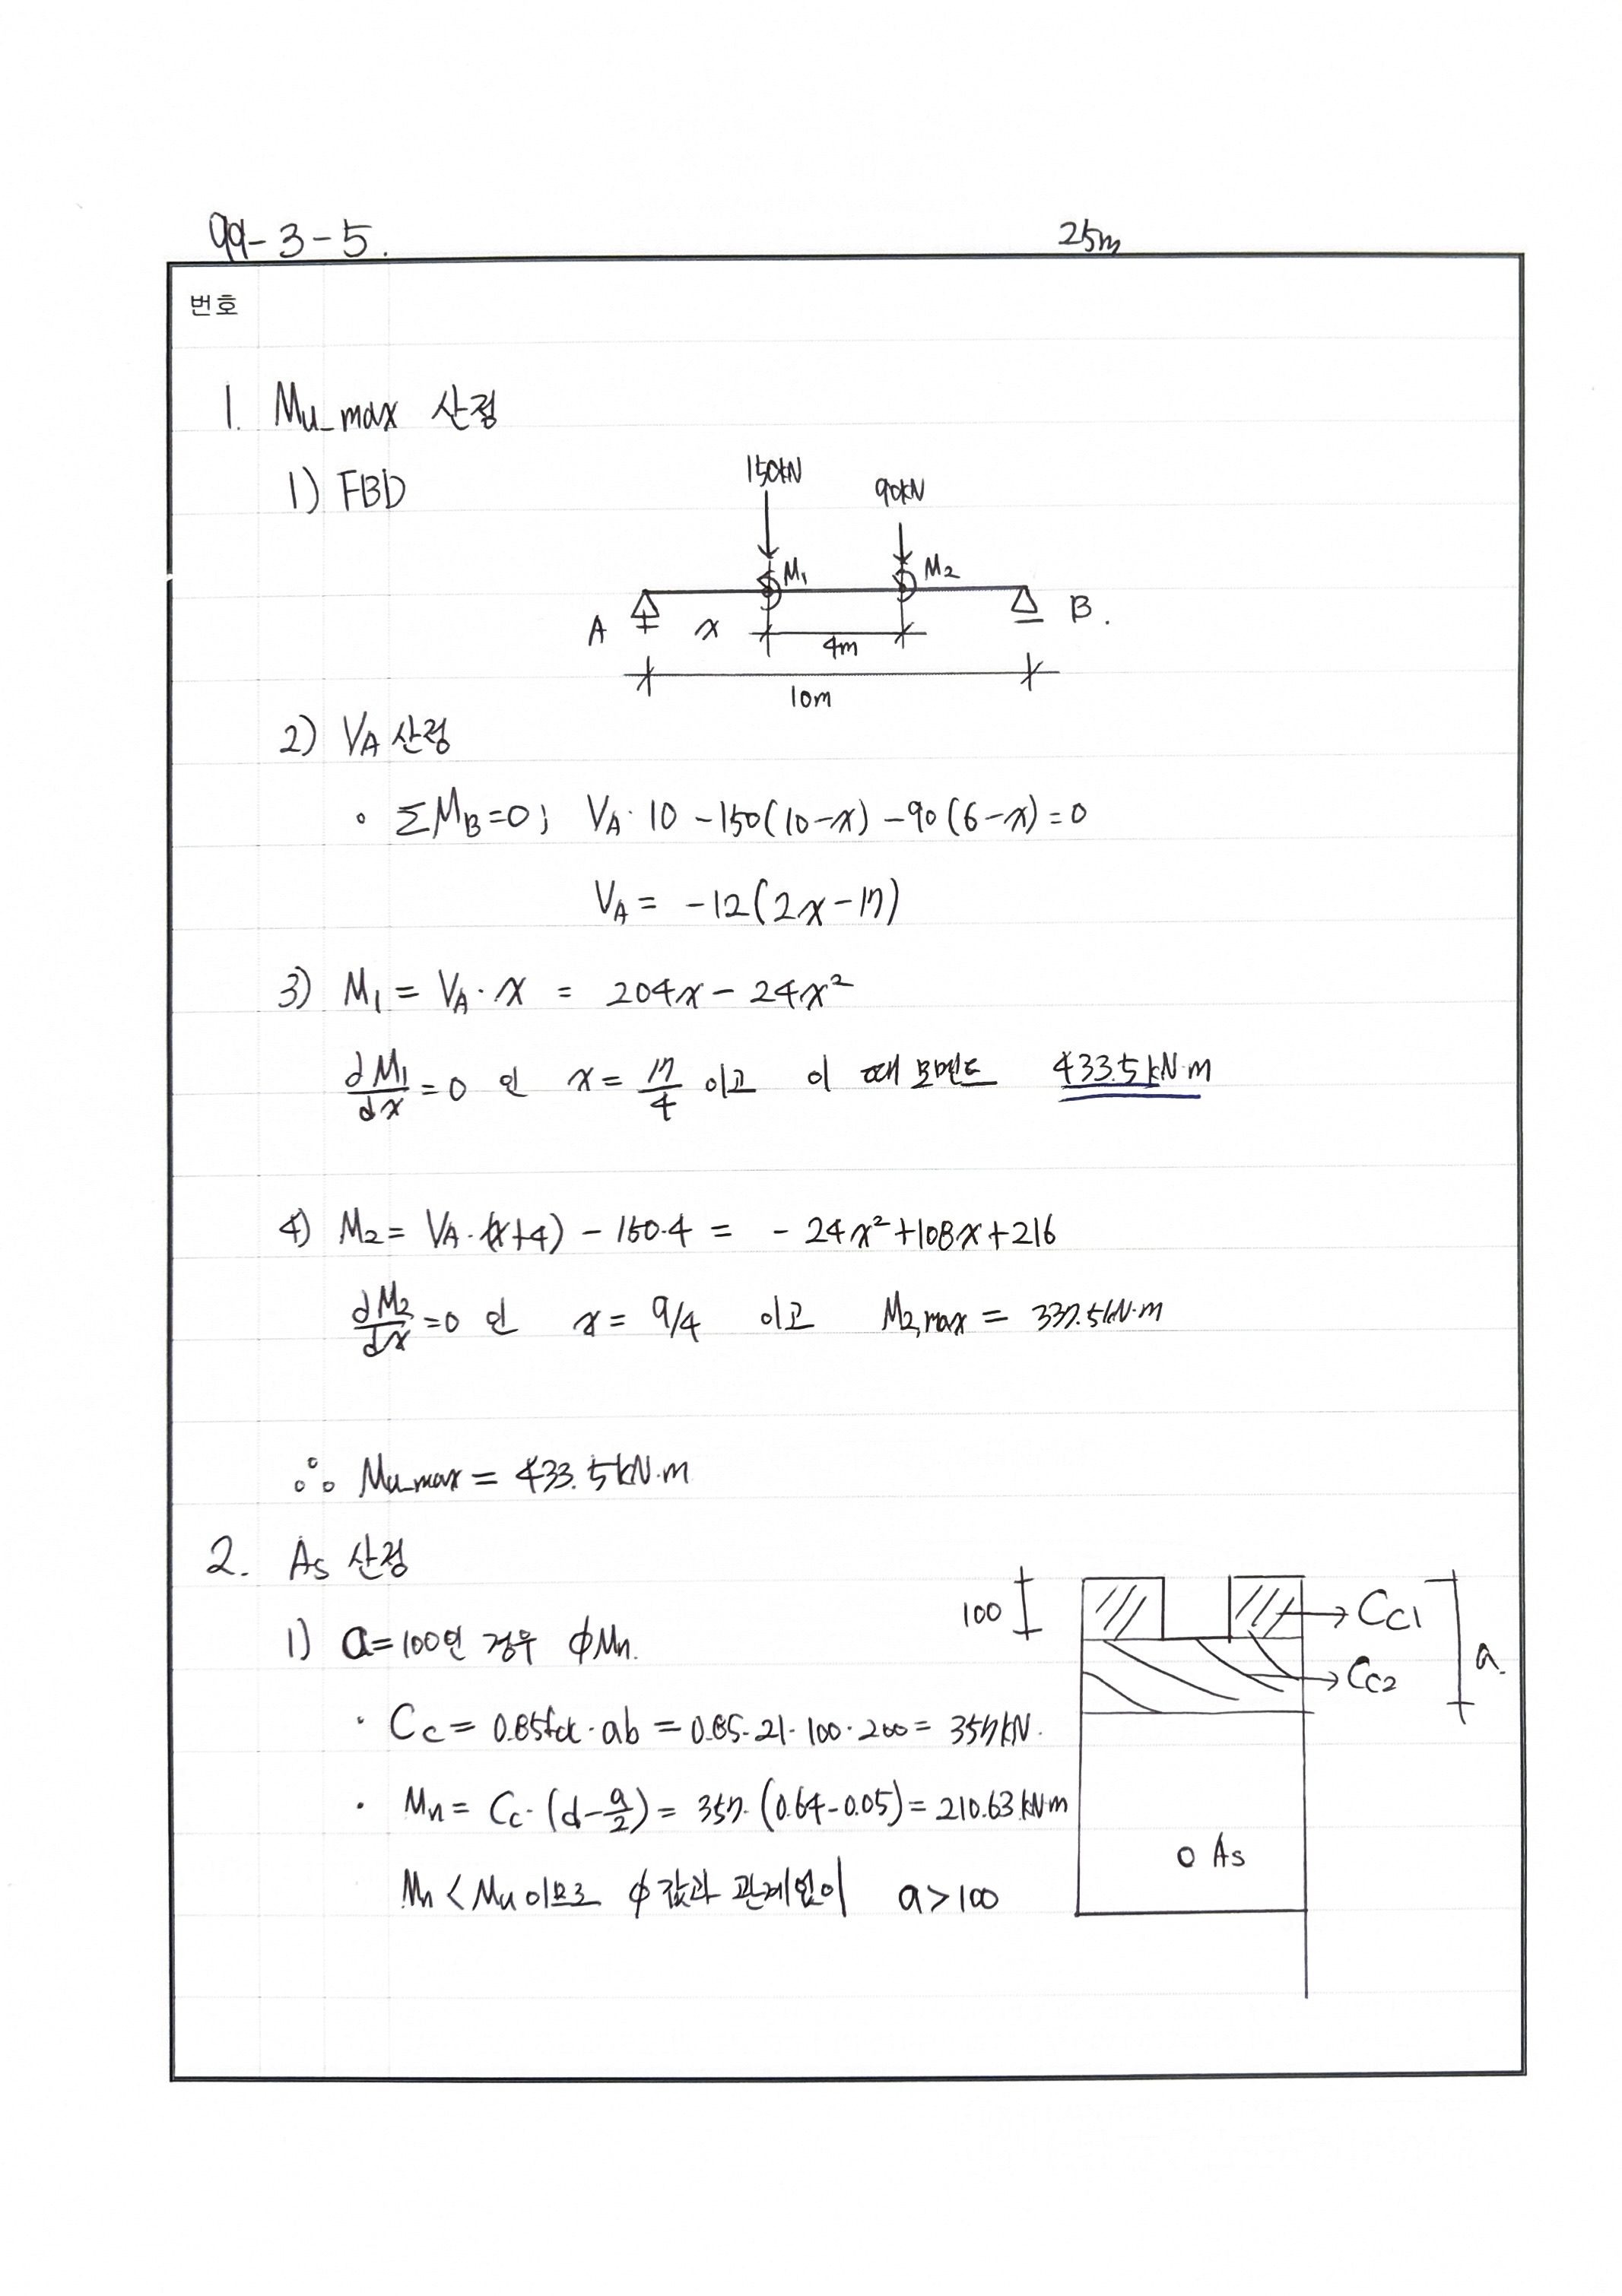 99-3-5.
25m
번호
1. Mu_max 산정
1) FBD
150kN
90kN
M₁
M₂
A
x
4m
B.
10m
2) VA 산정
• ΣMB=0; VA·10 -150(10-x) -90(6-x)=0
VA = -12(2x-17)
3) M₁ = VA·x = 204x - 24x²
dM₁/dx=0 인 x= 17/4 이고 이 때 모멘트 433.5kN·m
4) M₂= VA·(x+4) - 150·4 = - 24x²+108x+216
dM₂/dx=0 인 x= 9/4 이고 M₂,max = 337.5kN·m
∴ Mu_max = 433.5kN·m
2. As 산정
100
Cc1
1) a=100인 경우 φMn.
a.
Cc2
· Cc = 0.85fck·ab = 0.85·21·100·200 = 357kN.
· Mn= Cc·(d-a/2)= 357·(0.64-0.05)=210.63kN·m
As
Mn < Mu 이므로 φ 값과 관계없이 a>100